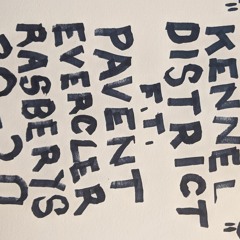 "KENNEL"
DISTRICT
F.T.
PAVENT
EVERCLER
RASBERYS